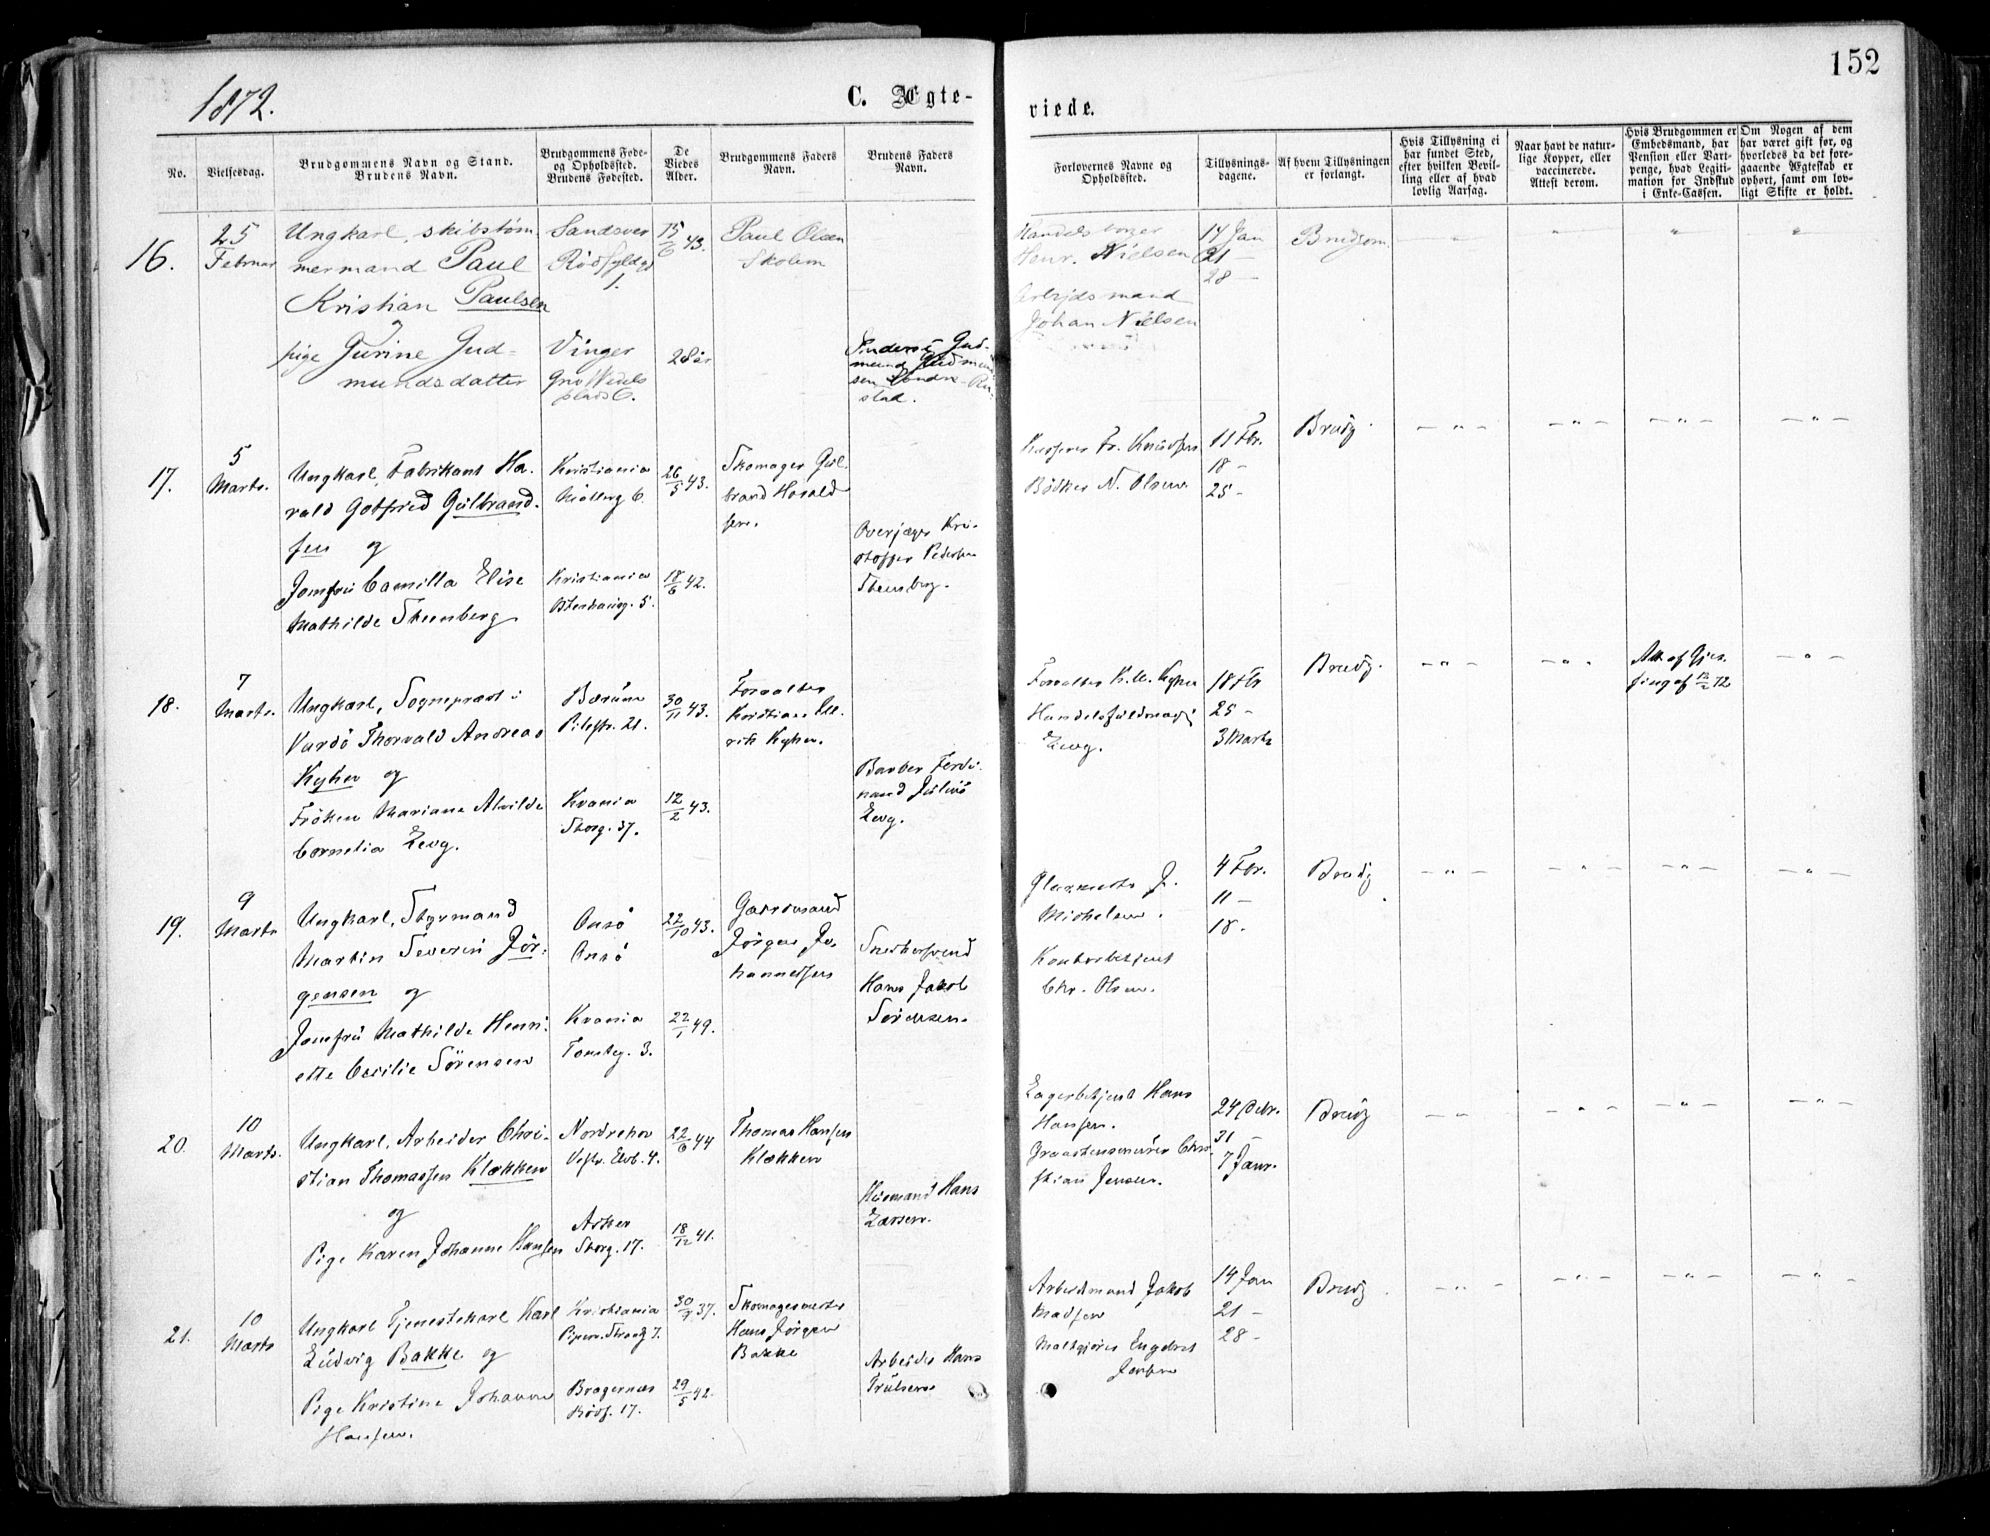 1872.
C. Ægte-
viede.
152
No.
Vielsesdag.
Brudgommens Navn og Stand.
Brudens Navn.
Brudgommens Føde-
og Opholdssted.
Brudens Fødested.
De
Viedes
Alder.
Brudgommens Faders
Navn.
Brudens Faders
Navn.
Forlovernes Navne og
Opholdssted.
Tillysnings-
dagene.
Af hvem Tillysningen
er forlangt.
Hvis Tillysning ei
har fundet Sted,
efter hvilken Bevil-
ling eller af hvad
lovlig Aarsag.
Naar havt de natur-
lige Kopper, eller
vaccinerede.
Attest derom.
Hvis Brudgommen er
Embedsmand, har
Pension eller Vart-
penge, hvad Legiti-
mation for Indskud
i Enke-Cassen.
Om Nogen af dem
har været gift før, og
hvorledes da det fore-
gaaende Ægteskab er
ophørt, samt om lov-
ligt Skifte er holdt.
16.
25
Februar
Ungkarl, skibstøm
mermand Paul
Kristian Paulsen
og
pige Gurine Gud-
mundsdatter
Sandsver
Vinger
15/6 43.
28 år
Paul Olsen
Skolem
Handelsborger
Henr. Nielsen
Arbejdsmand
Johan Nielsen
14 Jan
21 —
28 —
Brudgom
17.
5
Marts.
Ungkarl, Fabrikant Ha-
rald Gotfred Gulbrand-
sen og
Jomfru Camilla Elise
Mathilde Stenberg
Kristiania
Møllerg 6.
Kristiania
26/5 43.
18/6 42.
Skomager Gul-
brand Harald
sen.
Overjæger Kri-
stoffer Pedersen
Stenberg.
Kasserer Fr. Knudsen
Bødker N. Olsen
11 Fbr.
18 -
25 -
Brudg.
18.
7
Marts.
Ungkarl, Sognepræst i
Vardö Thorvald Andreas
Kyhn og
Frøken Mariane Alvilde
Cornelia Levy.
Bærum
Pilestr. 21.
Krania
Storg. 37.
30/11 43.
12/2 43.
Forvalter
Barber Ferdi-
nand Julius
Levy.
Levy.
18 Fbr
25 -
3 Marts
Brudg.
19.
9
Marts
Ungkarl, Styrmand
Martin Severin Jör-
gensen og
Jomfrü Mathilde Henri-
ette Cecilie Sörensen
Onsö
Onsö
Krania
Tomteg. 3.
22/10 43.
22/1 49.
Gaardmand
Jörgen Jo-
hannessen
Snedkersvend
Hans Jakob
Sörensen.
Glasmester J.
Michelsen.
Kontorbetjent
Chr. Olsen.
4 Fbr.
11 -
18 -
Brudg
20.
10
Marts.
Ungkarl, Arbeider Chri-
stian Thomassen Klækken
og
Pige Karen Johanne Hansen
Norderhov
Vestr. Elvb. 4.
Asker
Storg. 17.
22/6 44
18/12 41.
Thomas Hansen
Klækken
Husmand Hans
Larsen.
Lagerbetjent Hans
Hansen.
stian Jensen.
24 Debr.
31
7 Janr.
Brudg
21.
10
Marts
Ungkarl Tjenestekarl Karl
Ludvig Bakke og
Pige Kristine Johanne
Hansen.
Kristiania
Bragernæs
Rödf. 17.
29/5 42.
Skomagermester
Hans Jörgen
Bakke
Arbeider Hans
Trulsen
Arbeidsmand Jakob
Madsen
14 Jan
21 -
28 -
Brudg